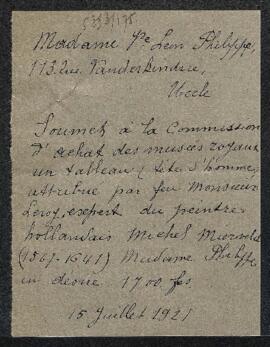 Madame Vve Léon Philippe,
113, rue Vanderkindere,
Uccle
Soumet à la Commission
d'achat des musées royaux
un tableau (tête d'homme
attribué par feu Monsieur
Leroy, expert du peintre
hollandais Michel
(1567-1641) Madame Philippe
en désire 1700 fcs.
15 juillet 1921